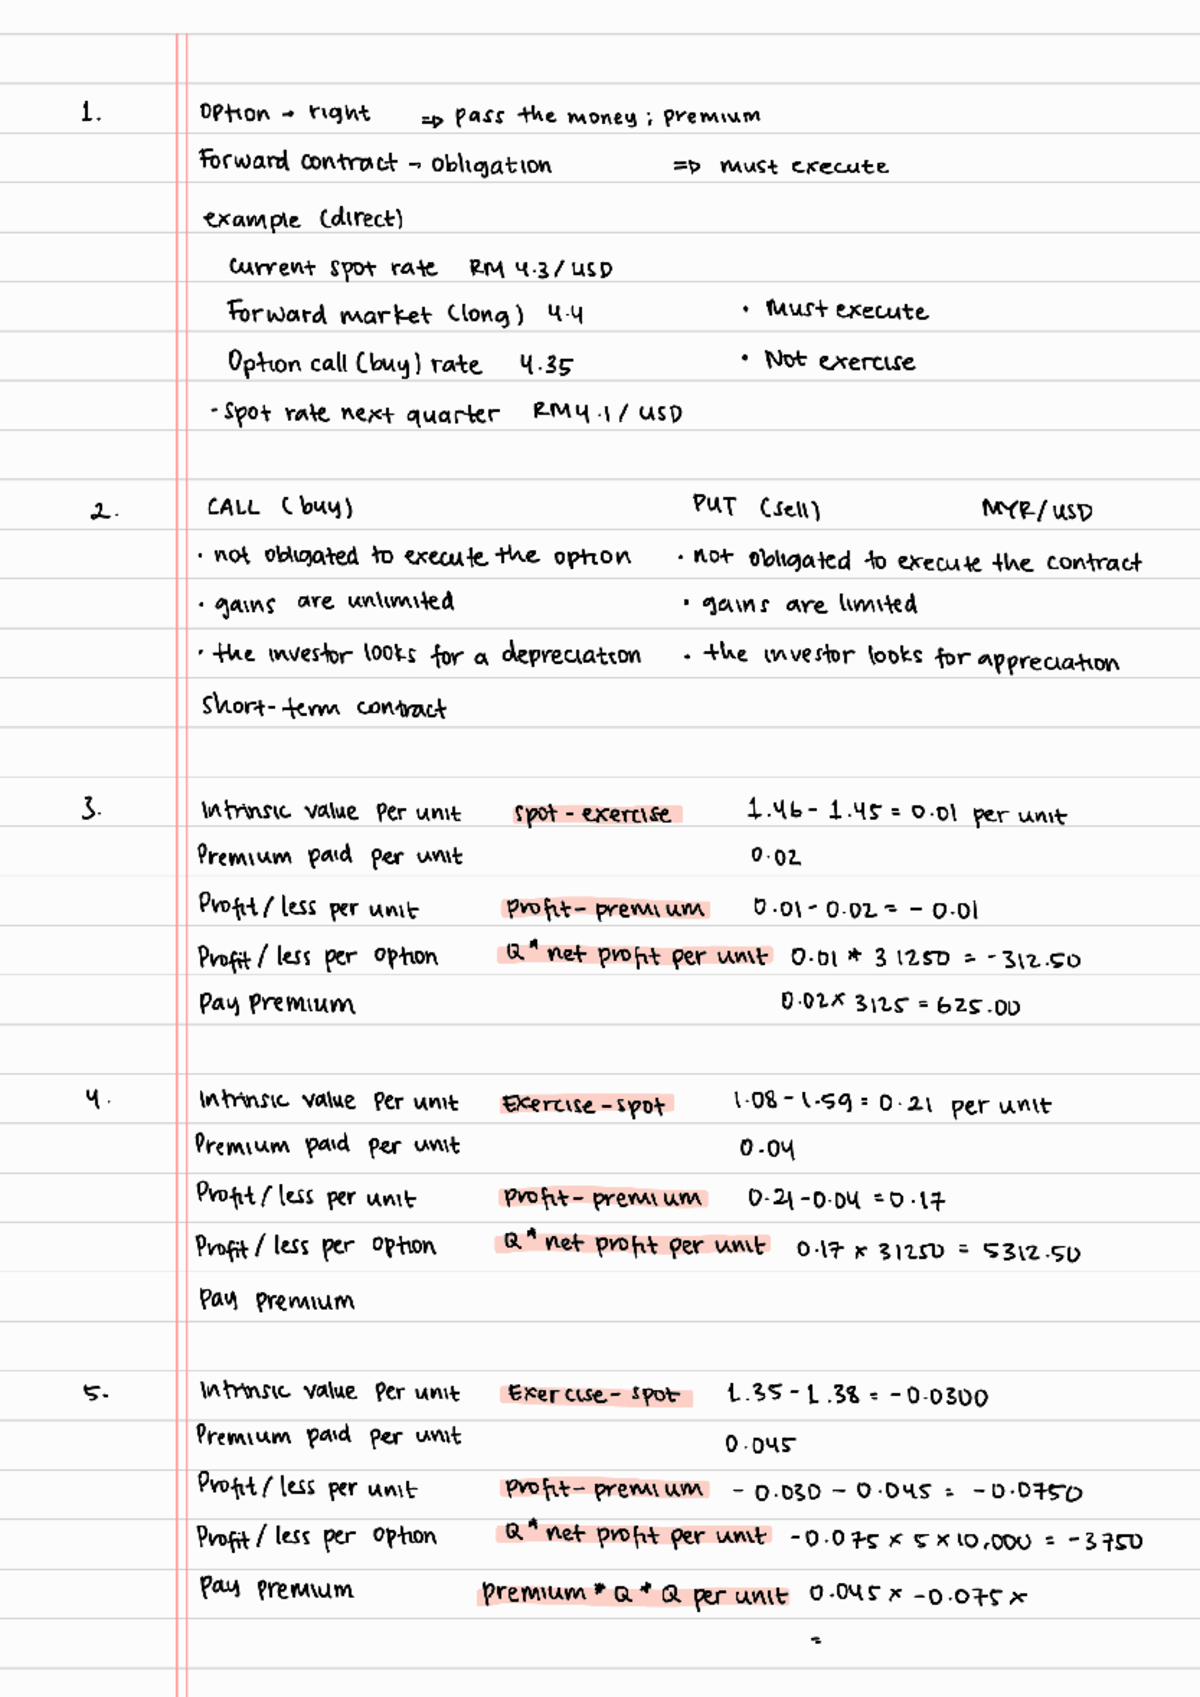 1. Option → right ⇒ pass the money ; premium
Forward contract → obligation ⇒ must execute
example (direct)
Current spot rate RM 4.3 / USD
Forward market (long) 4.4 • Must execute
Option call (buy) rate 4.35 • Not exercise
- Spot rate next quarter RM4.1 / USD
2. CALL (buy) PUT (sell) MYR/USD
• not obligated to execute the option • not obligated to execute the contract
• gains are unlimited • gains are limited
• the investor looks for a depreciation • the investor looks for appreciation
Short-term contract
3. Intrinsic value per unit spot - exercise 1.46 - 1.45 = 0.01 per unit
Premium paid per unit 0.02
Profit / less per unit profit - premium 0.01 - 0.02 = - 0.01
Profit / less per option Q * net profit per unit 0.01 * 31250 = -312.50
Pay premium 0.02 x 3125 = 625.00
4. Intrinsic value per unit Exercise - spot 1.08 - 1.59 = 0.21 per unit
Premium paid per unit 0.04
Profit / less per unit profit - premium 0.21 - 0.04 = 0.17
Profit / less per option Q * net profit per unit 0.17 x 31250 = 5312.50
Pay premium
5. Intrinsic value per unit Exercise - spot 1.35 - 1.38 = - 0.0300
Premium paid per unit 0.045
Profit / less per unit profit - premium - 0.030 - 0.045 = - 0.0750
Profit / less per option Q * net profit per unit - 0.075 x 5 x 10,000 = - 3750
Pay premium premium * Q * Q per unit 0.045 x - 0.075 x
=